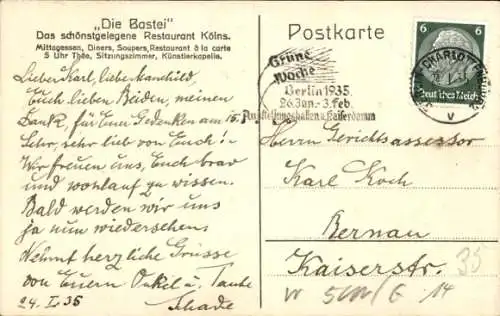 „Die Bastei"
Das schönstgelegene Restaurant Kölns.
Mittagessen, Diners, Soupers, Restaurant à la carte
5 Uhr Thée, Sitzungszimmer, Künstlerkapelle.
Lieber Karl, liebe Manchild,
Euch lieben Beiden, meinen
Dank, für Euer Gedenken am 15.
Sehr, sehr lieb von Euch!
Wir freuen uns, Euch brav
und wohlauf zu wissen.
Bald werden wir uns
ja nun wiedersehen.
Nehmt herzliche Grüsse
von Euern Onkel u. Tante
24. I. 35
Postkarte
Grüne
Woche
Berlin 1935
26. Jan. - 3. Feb.
Ausstellungshallen a. Kaiserdamm
CHARLOTTENBURG
6 6
Deutsches Reich
Herrn Gerichtsassessor
Karl Koch
Bernau
Kaiserstr.
35
14